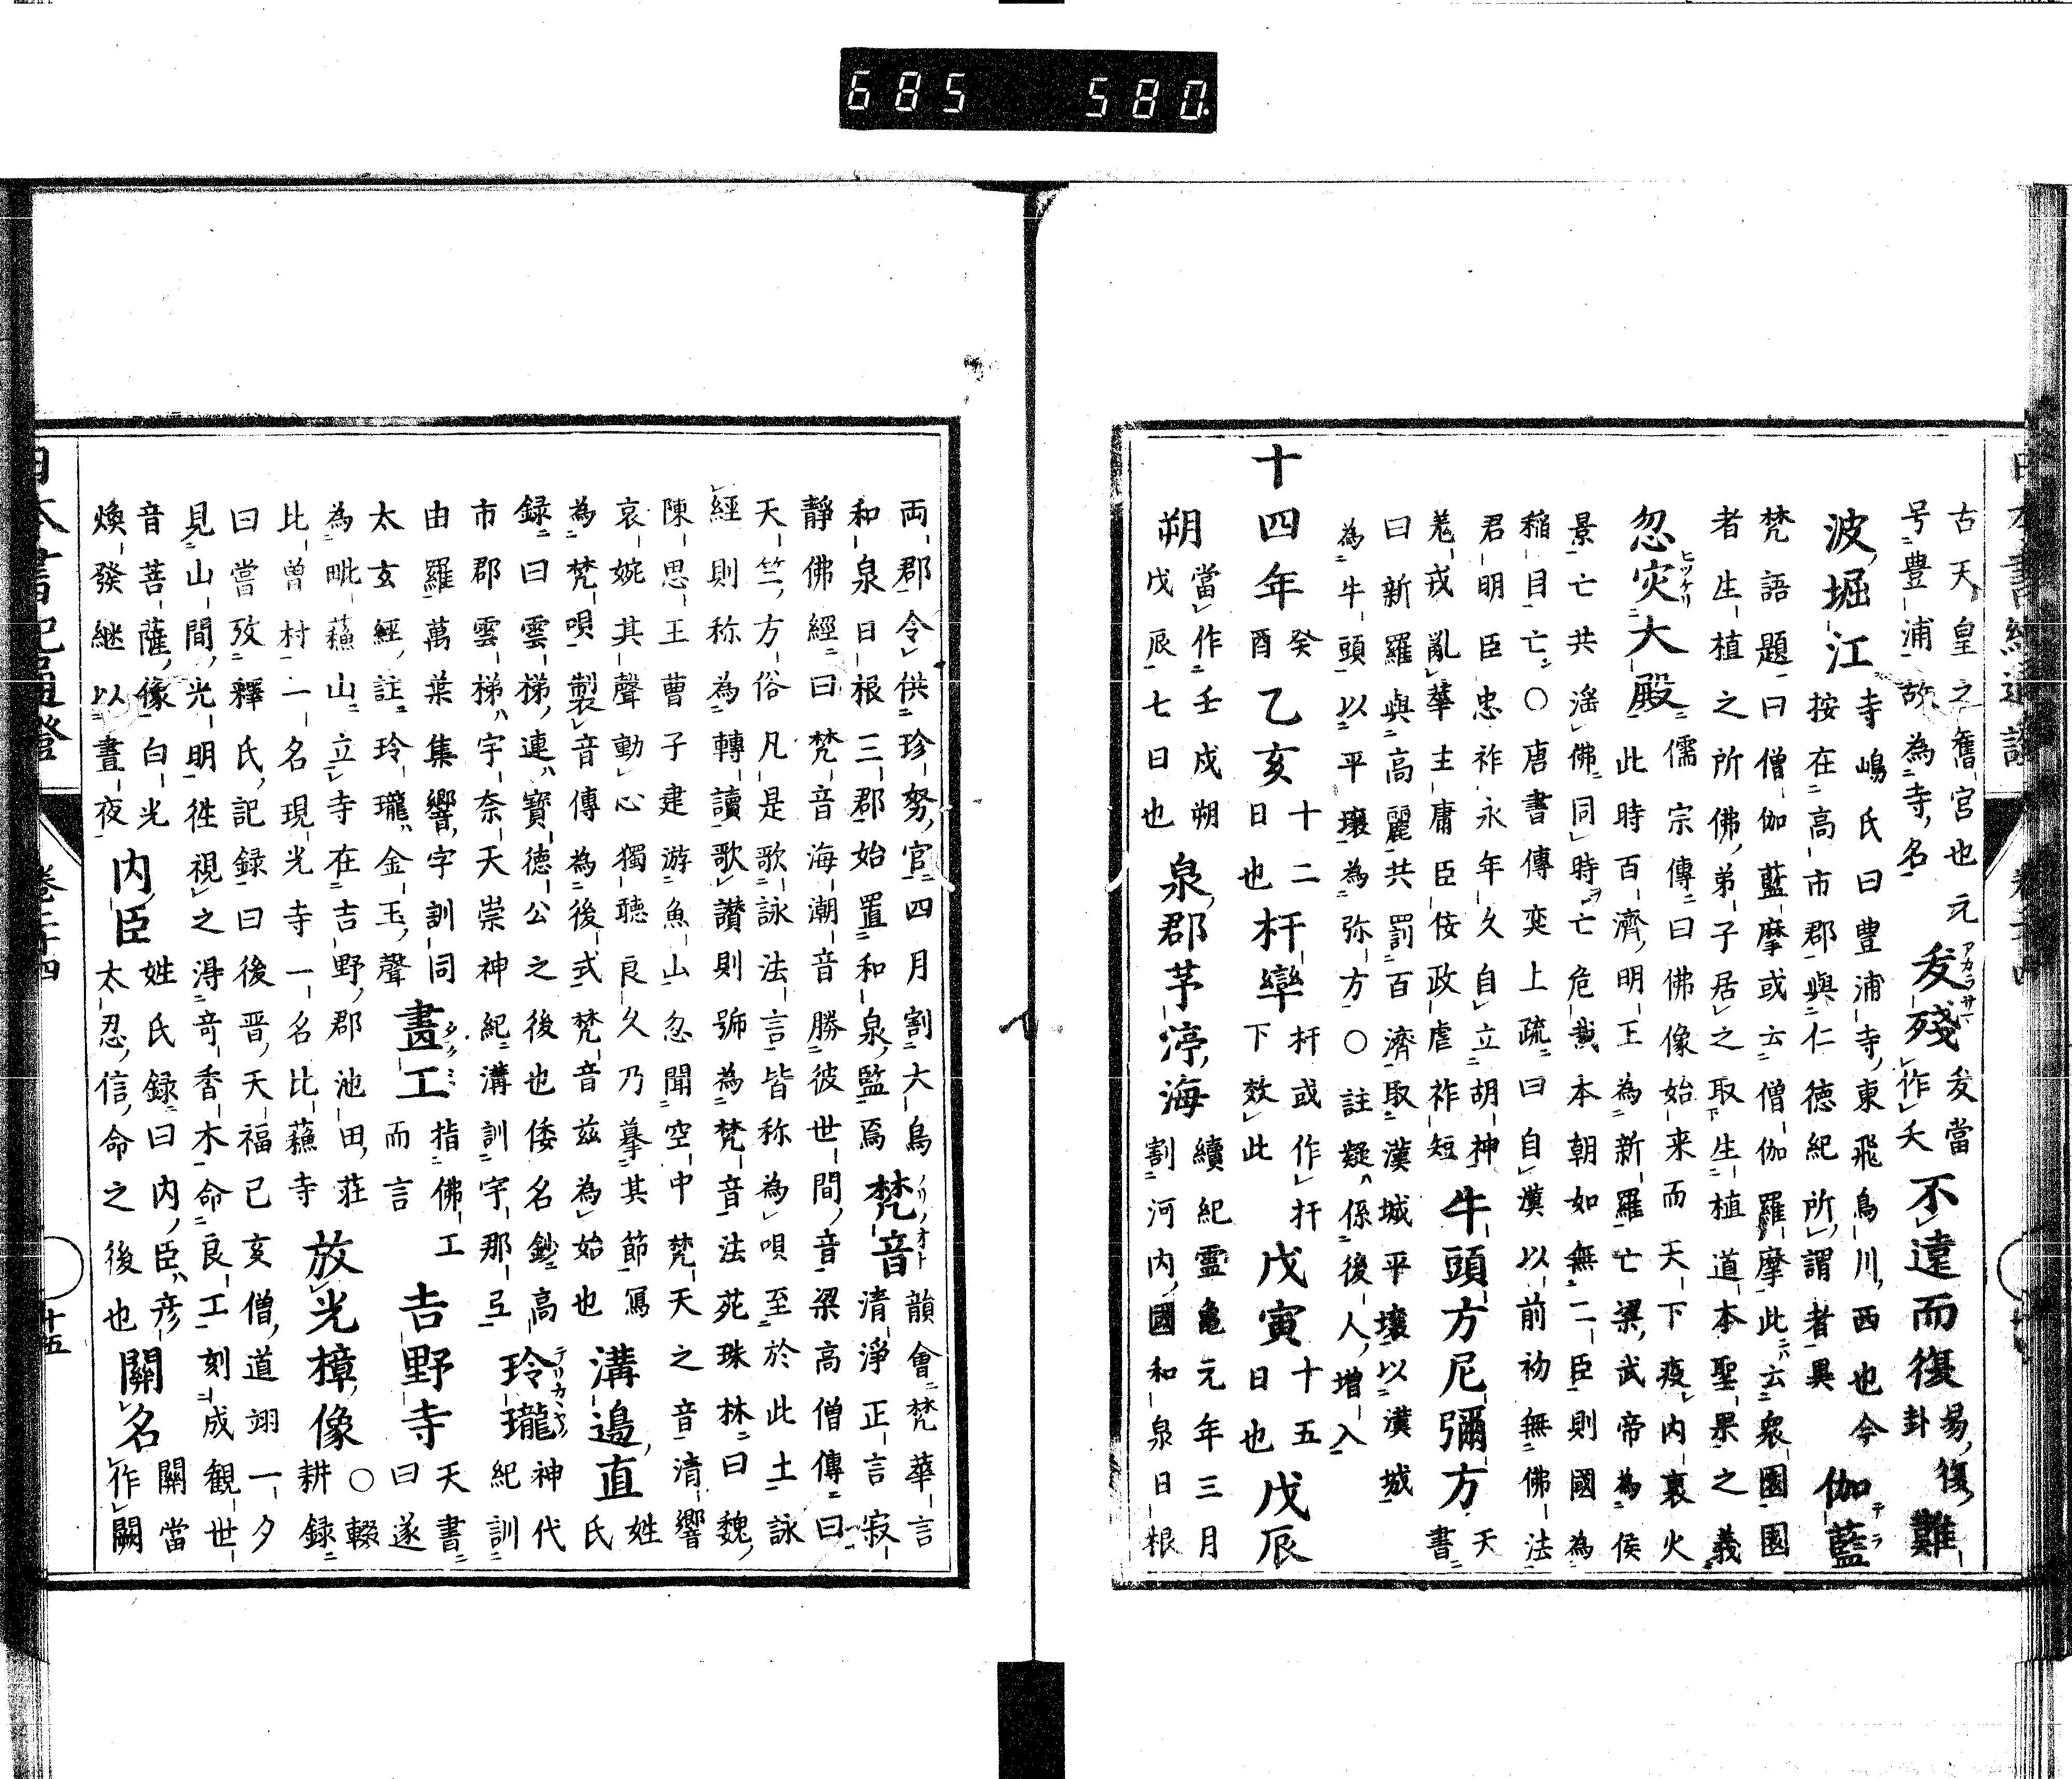 古天皇之舊宮也元
号豊浦故為寺名
叐殘
叐當
作夭
不遠而復
易復
卦
難
波堀江
寺嶋氏曰豊浦寺東飛鳥川西也今
按在高市郡與仁徳紀所謂者異
伽藍
テラ
梵語題曰僧伽藍摩或云僧伽羅摩此云衆園園
者生植之所佛弟子居之取生植道本聖果之義
忽灾大殿
ヒツケリ
儒宗傳曰佛像始来而天下疫内裏火
此時百濟明王為新羅亡梁武帝為侯
景亡共滛佛同時亡危哉本朝如無二臣則國為
稲目亡〇唐書傳奕上疏曰自漢以前初無佛法
君明臣忠祚永年久自立胡神
羗戎亂華主庸臣佞政虐祚短
牛頭方尼彌方
天
書
曰新羅與高麗共罰百濟取漢城平壤以漢城
為牛頭以平壤為弥方〇註疑係後人増入
十四年
癸
酉
乙亥
十二
日也
杆率
杆或作扞
下效此
戊寅
十五
日也
戊辰
朔
當作壬戌朔
戊辰七日也
泉郡茅渟海
續紀霊亀元年三月
割河内國和泉日根
両郡令供珍努官四月割大鳥
和泉日根三郡始置和泉監焉
梵音
ノリノオト
韻會梵華言
清淨正言寂
靜佛經曰梵音海潮音勝彼世間音梁高僧傳曰
天竺方俗凡是歌詠法言皆称為唄至於此土詠
經則称為轉讀歌讃則號為梵音法苑珠林曰魏
陳思王曹子建游魚山忽聞空中梵天之音清響
哀婉其聲動心獨聴良久乃摹其節寫
為梵唄製音傳為後式梵音茲為始也
溝邉直
姓
氏
録曰雲梯連寳徳公之後也倭名鈔高
市郡雲梯宇奈天崇神紀溝訓宇那弖
玲瓏
神代
紀訓
由羅萬葉集響字訓同
太玄經註玲瓏金玉聲
畫工
指佛工
而言
吉野寺
天書
曰遂
為毗蘓山立寺在吉野郡池田荘
比曽村一名現光寺一名比蘓寺
放光樟像
〇輟
耕録
曰嘗攷釋氏記録曰後晋天福己亥僧道翊一夕
見山間光明徃視之淂竒香木命良工刻成觀世
音菩薩像白光
煥發継以晝夜
内臣
姓氏録曰内臣彦
太忍信命之後也
關名
關當
作闕
十五